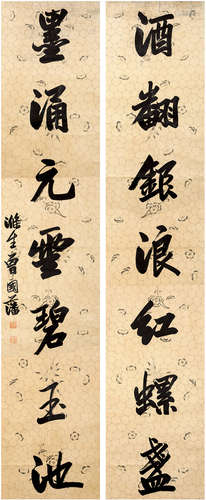 酒翻銀浪紅螺盞
墨涌元靈碧玉池
滌生曾國藩